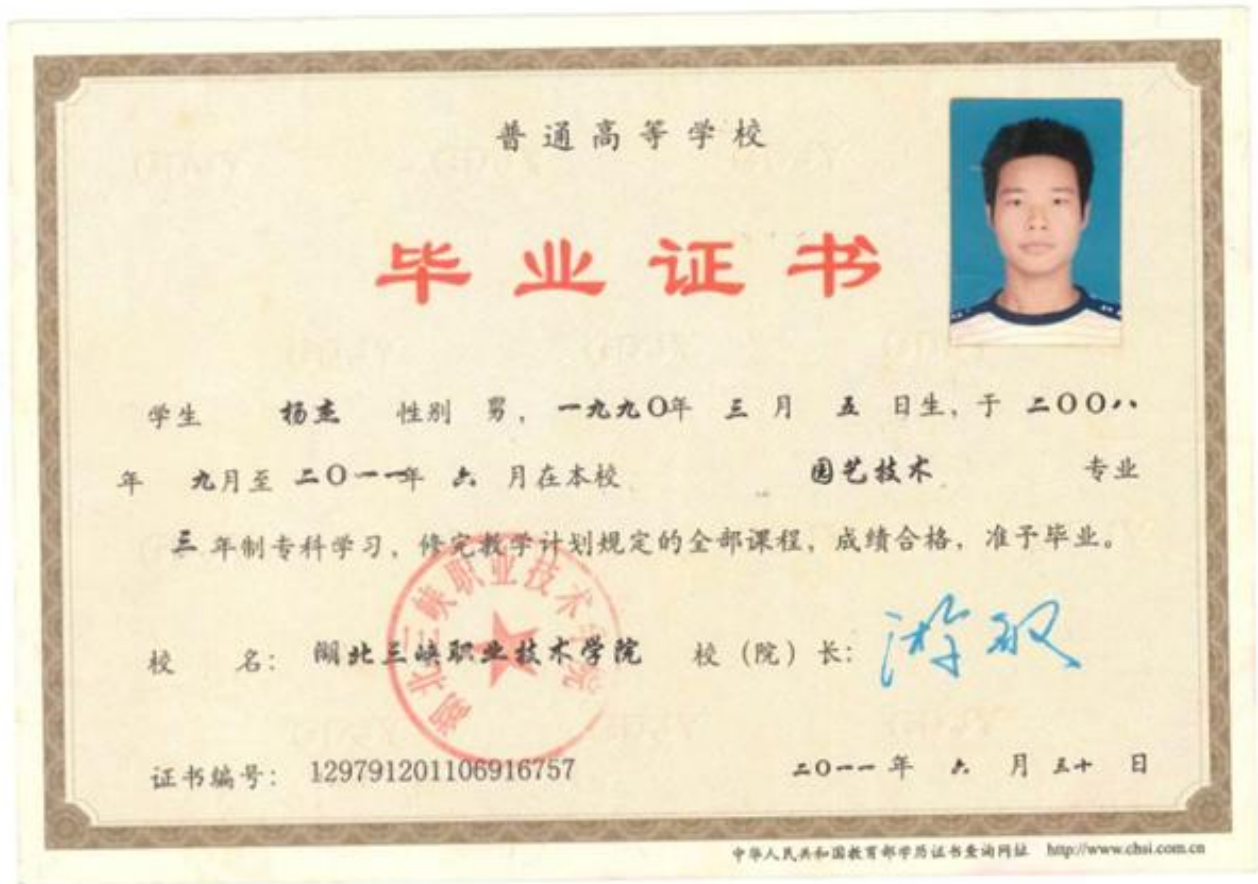 普通高等学校
毕业证书
学生 杨杰 性别 男，一九九〇年 三 月 五 日生，于 二〇〇八
年 九月至 二〇一一年 六 月在本校 园艺技术 专业
三 年制专科学习，修完教学计划规定的全部课程，成绩合格，准予毕业。
湖北三峡职业技术学院
校 名： 湖北三峡职业技术学院 校（院）长：
证书编号： 129791201106916757 二〇一一 年 六 月 三十 日
中华人民共和国教育部学历证书查询网址 http://www.chsi.com.cn